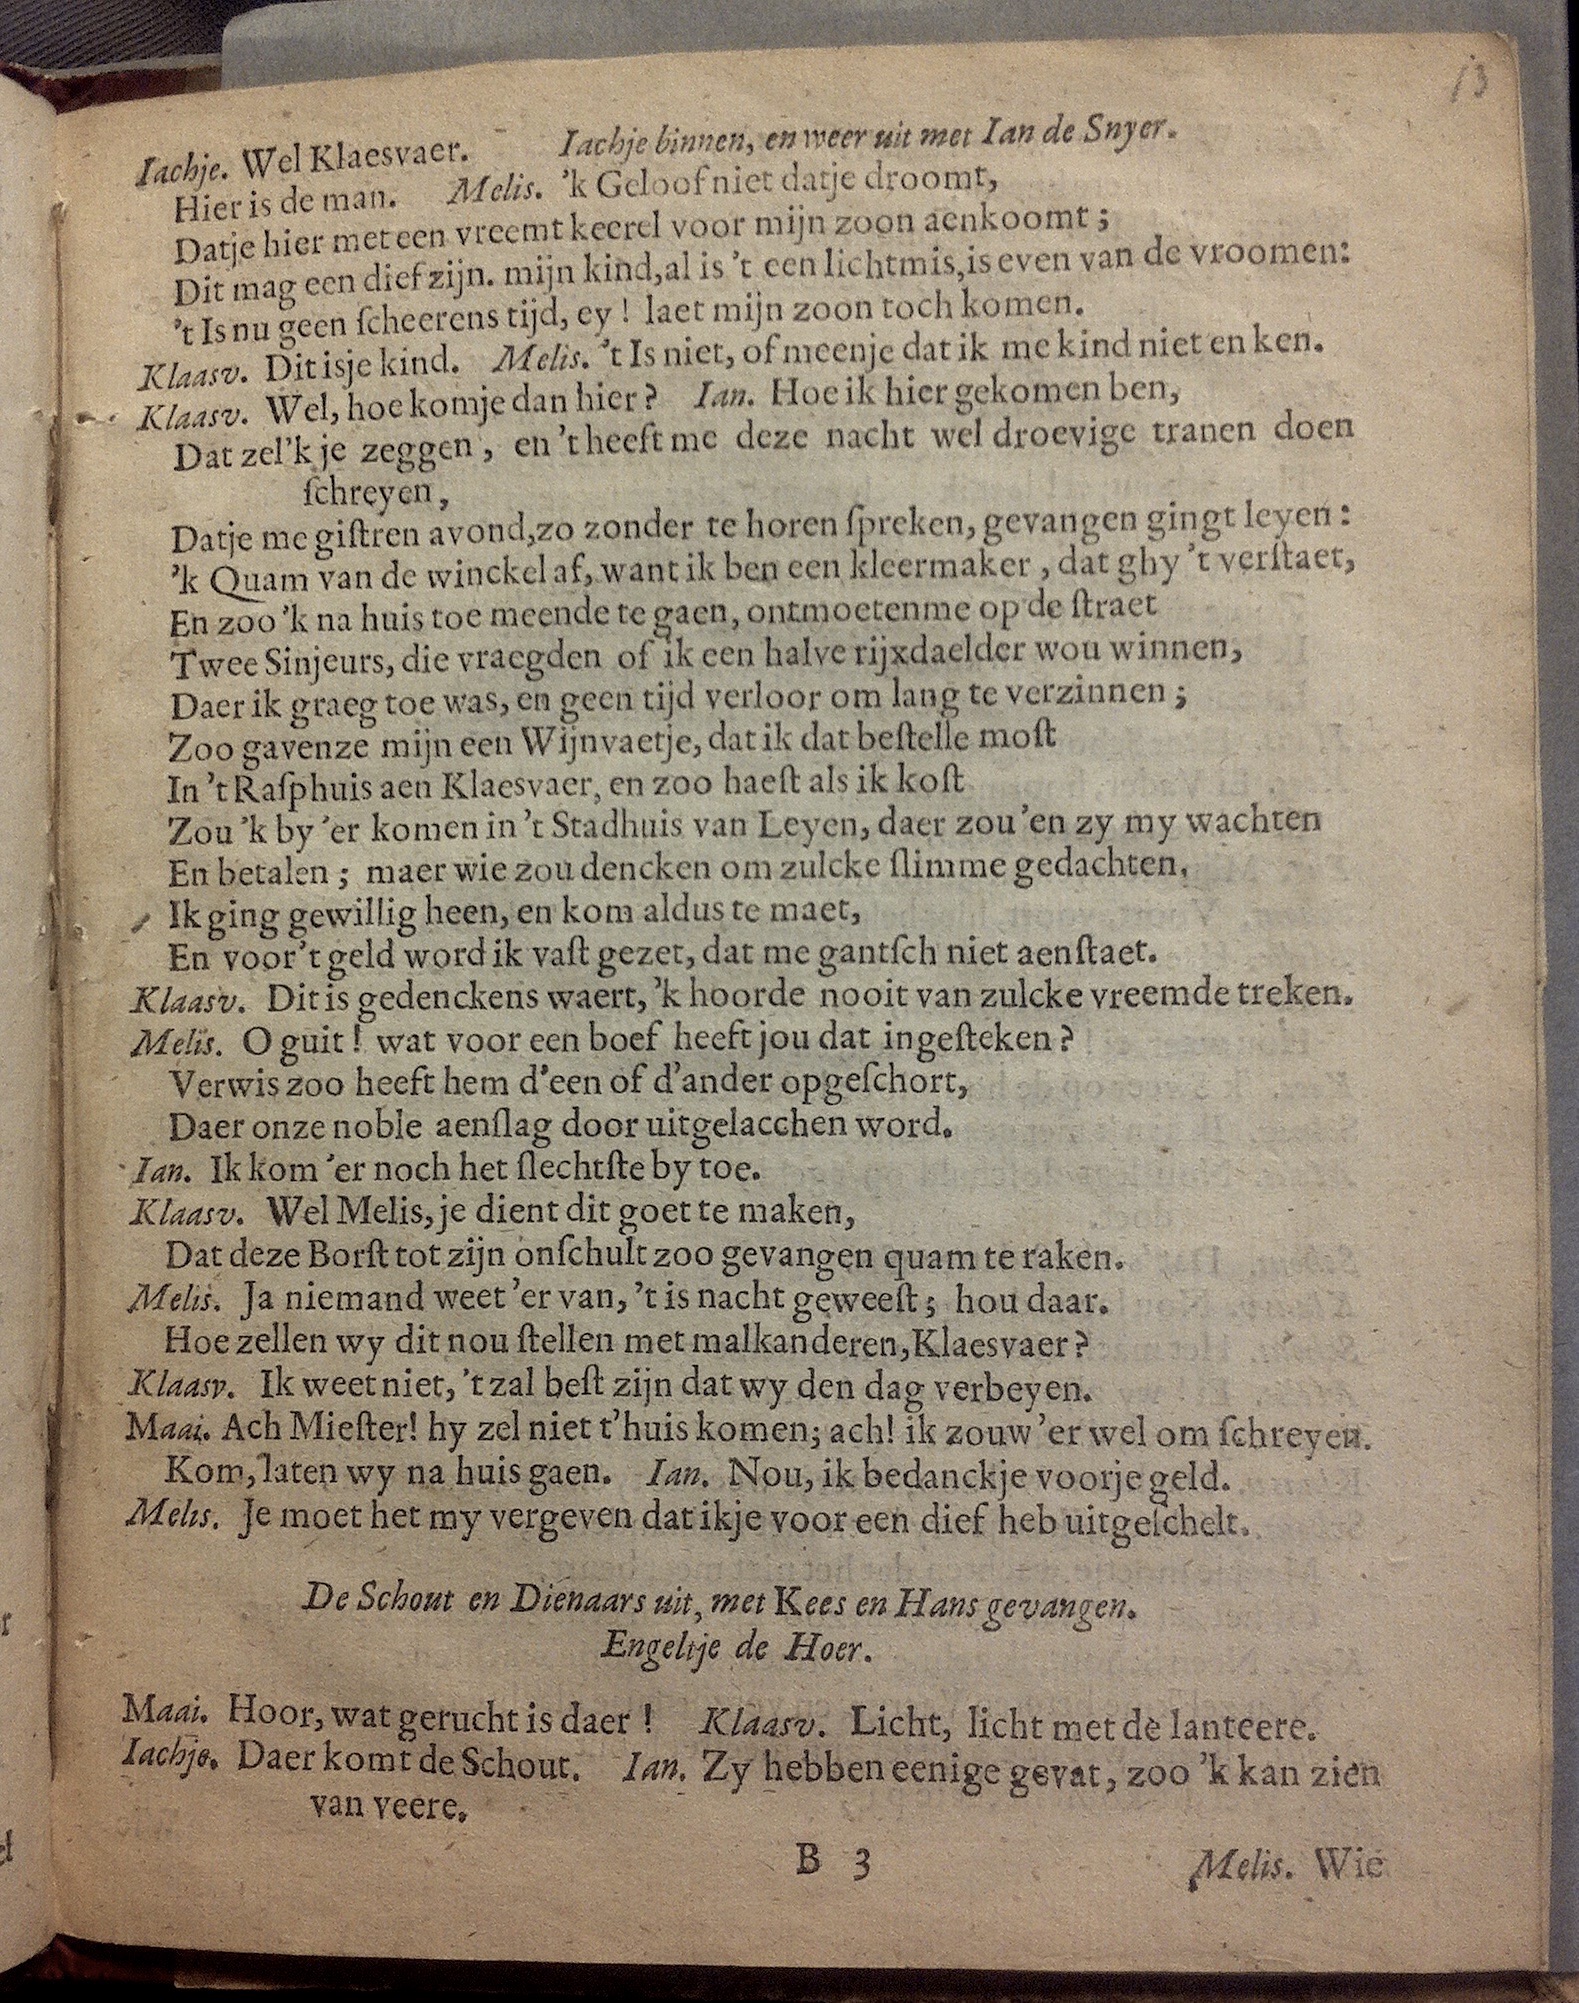 13
Iachje. Wel Klaesvaer. Iachje binnen, en weer uit met Ian de Snyer.
Hier is de man. Melis. 'k Geloof niet datje droomt,
Datje hier met een vreemt keerel voor mijn zoon aenkoomt;
Dit mag een dief zijn. mijn kind, al is 't een lichtmis, is even van de vroomen:
't Is nu geen ſcheerens tijd, ey! laet mijn zoon toch komen.
Klaasv. Dit isje kind. Melis. 't Is niet, of meenje dat ik me kind niet en ken.
Klaasv. Wel, hoe komje dan hier? Ian. Hoe ik hier gekomen ben,
Dat zel'k je zeggen, en 't heeft me deze nacht wel droevige tranen doen
ſchreyen,
Datje me giſtren avond, zo zonder te horen ſpreken, gevangen gingt leyen:
'k Quam van de winckel af, want ik ben een kleermaker, dat ghy 't verſtaet,
En zoo 'k na huis toe meende te gaen, ontmoetenme op de ſtraet
Twee Sinjeurs, die vraegden of ik een halve rijxdaelder wou winnen,
Daer ik graeg toe was, en geen tijd verloor om lang te verzinnen;
Zoo gavenze mijn een Wijnvaetje, dat ik dat beſtelle moſt
In 't Raſphuis aen Klaesvaer, en zoo haeſt als ik koſt
Zou 'k by 'er komen in 't Stadhuis van Leyen, daer zou 'en zy my wachten
En betalen; maer wie zou dencken om zulcke ſlimme gedachten,
Ik ging gewillig heen, en kom aldus te maet,
En voor 't geld word ik vaſt gezet, dat me gantſch niet aenſtaet.
Klaasv. Dit is gedenckens waert, 'k hoorde nooit van zulcke vreemde treken.
Melis. O guit! wat voor een boef heeft jou dat ingeſteken?
Verwis zoo heeft hem d'een of d'ander opgeſchort,
Daer onze noble aenſlag door uitgelacchen word.
Ian. Ik kom 'er noch het ſlechtſte by toe.
Klaasv. Wel Melis, je dient dit goet te maken,
Dat deze Borſt tot zijn onſchult zoo gevangen quam te raken.
Melis. Ja niemand weet 'er van, 't is nacht geweeſt; hou daar.
Hoe zellen wy dit nou ſtellen met malkanderen, Klaesvaer?
Klaasv. Ik weet niet, 't zal beſt zijn dat wy den dag verbeyen.
Maai. Ach Mieſter! hy zel niet t'huis komen; ach! ik zouw 'er wel om ſchreyen.
Kom, laten wy na huis gaen. Ian. Nou, ik bedanckje voorje geld.
Melis. Je moet het my vergeven dat ikje voor een dief heb uitgeſchelt.
De Schout en Dienaars uit, met Kees en Hans gevangen.
Engeltje de Hoer.
Maai. Hoor, wat gerucht is daer! Klaasv. Licht, licht met de lanteere.
Iachje. Daer komt de Schout. Ian. Zy hebben eenige gevat, zoo 'k kan zien
van veere.
B 3 Melis. Wie